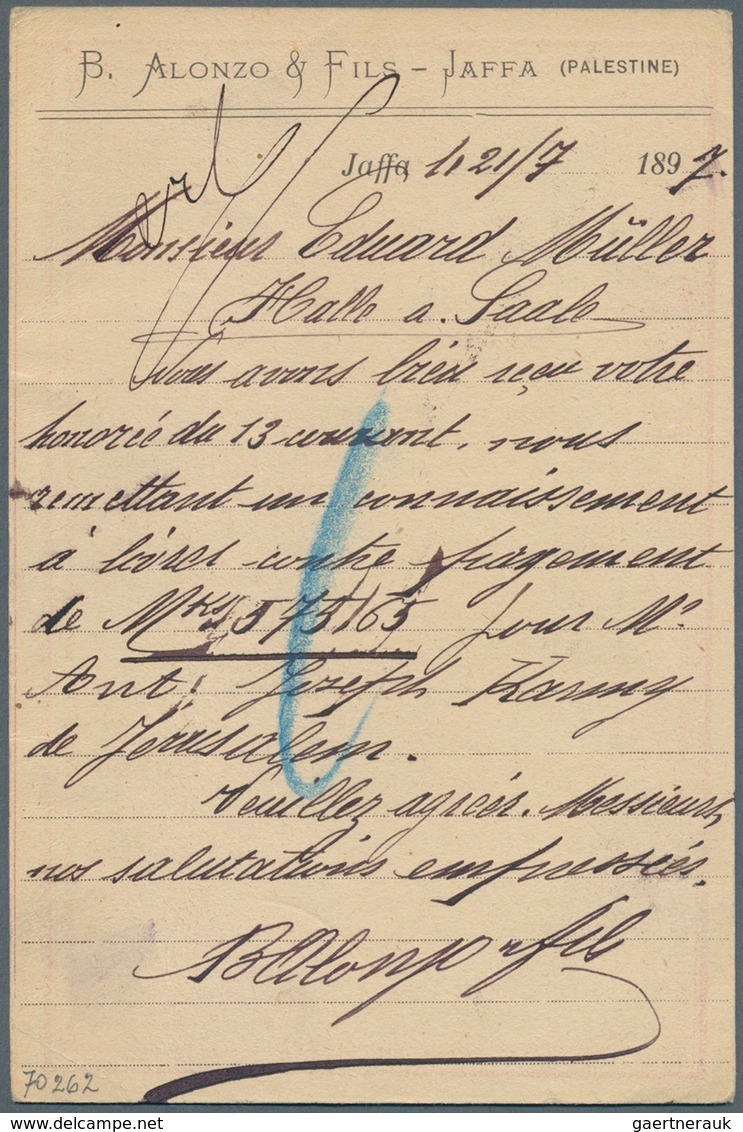 B. ALONZO & FILS – JAFFA (PALESTINE)
Jaffa, le 21/7 1897.
Monsieur Eduard Müller
Halle a. Saale
Nous avons bien reçu votre
honorée du 13 courant, nous
remettant un connaissement
à livrer contre payement
de Mks 575/65 pour Mr
Ant. Joseph Karmy
de Jérusalem.
Veuillez agréer, Messieurs,
nos salutations empressées.
B Alonzo & fils
70262
gaertnerauk